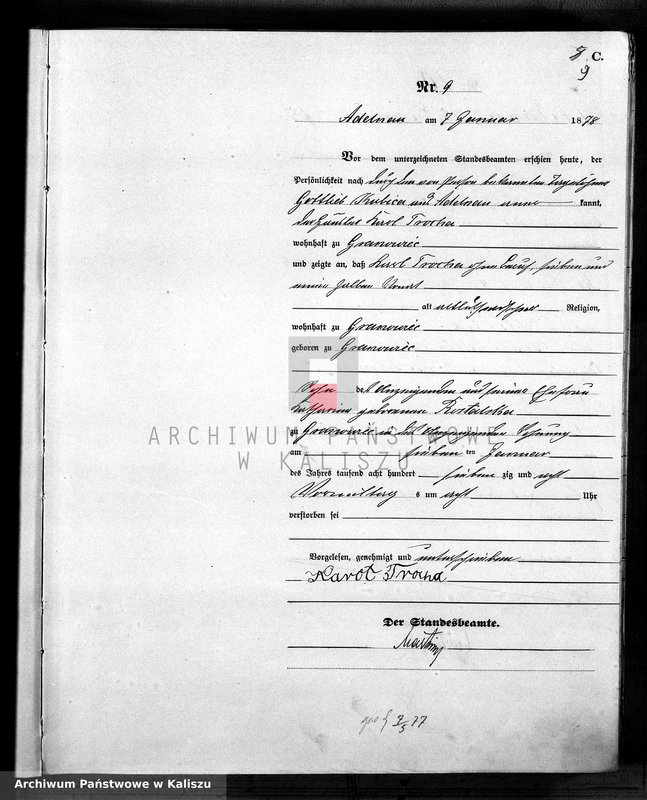 8 C.
9
Nr. 9
Adelnau am 7 Januar 1878
Vor dem unterzeichneten Standesbeamten erschien heute, der
Persönlichkeit nach durch den von Person bekannten
Gottlieb Kubica aus Adelnau aner kannt,
der Häusler Karl Trocha
wohnhaft zu Granowiec
und zeigte an, daß Karl Trocha ohne Beruf, sieben und
einen halben Monat
alt altlutherischer Religion,
wohnhaft zu Granowiec
geboren zu Granowiec
Sohn des Anzeigenden und seiner Ehefrau
Katharina geborenen
zu Granowiec in des Anzeigenden Wohnung
am sieben ten Januar
des Jahres tausend acht hundert sieben zig und acht
Vormittag s um acht Uhr
verstorben sei
Vorgelesen, genehmigt und unterschrieben
Karol Trocha
Der Standesbeamte.
ARCHIWUM PAŃSTWOWE
W KALISZU
geb 2/5 77
Archiwum Państwowe w Kaliszu